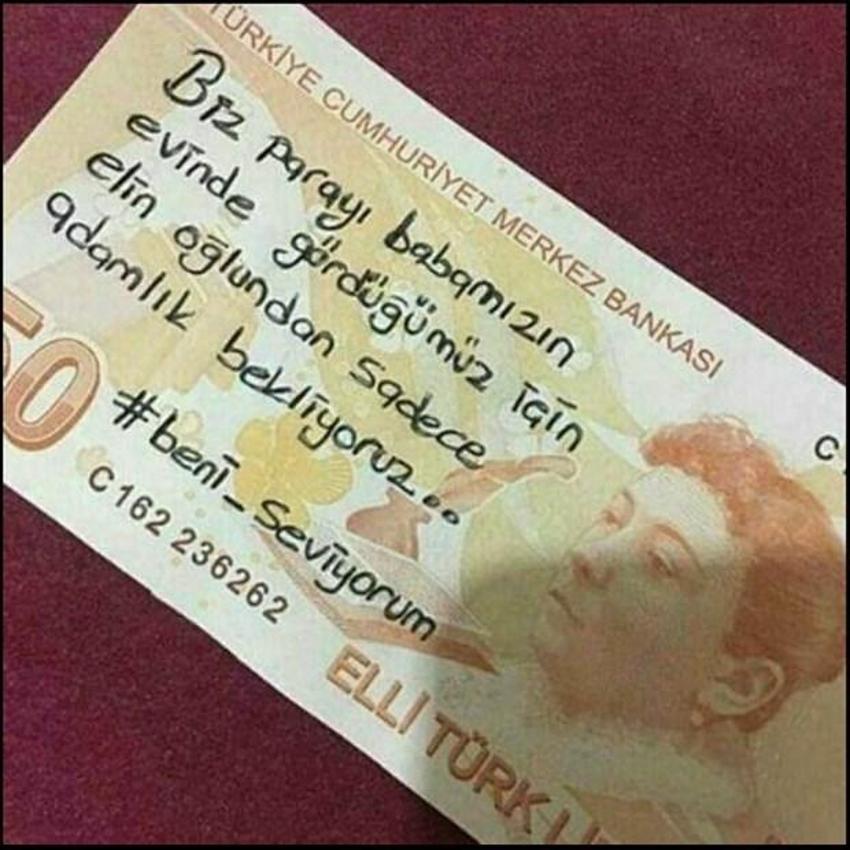 TÜRKİYE CUMHURİYET MERKEZ BANKASI
Biz parayı babamızın
evinde gördüğümüz için
elin oğlundan sadece
adamlık bekliyoruz..
#beni_seviyorum
50
C162 236262
C
ELLİ TÜRK Lİ